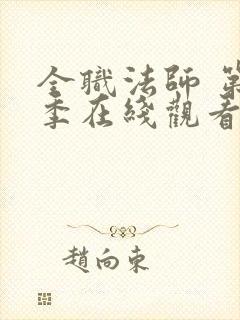 全職法師 第
季在綫觀看
趙向東